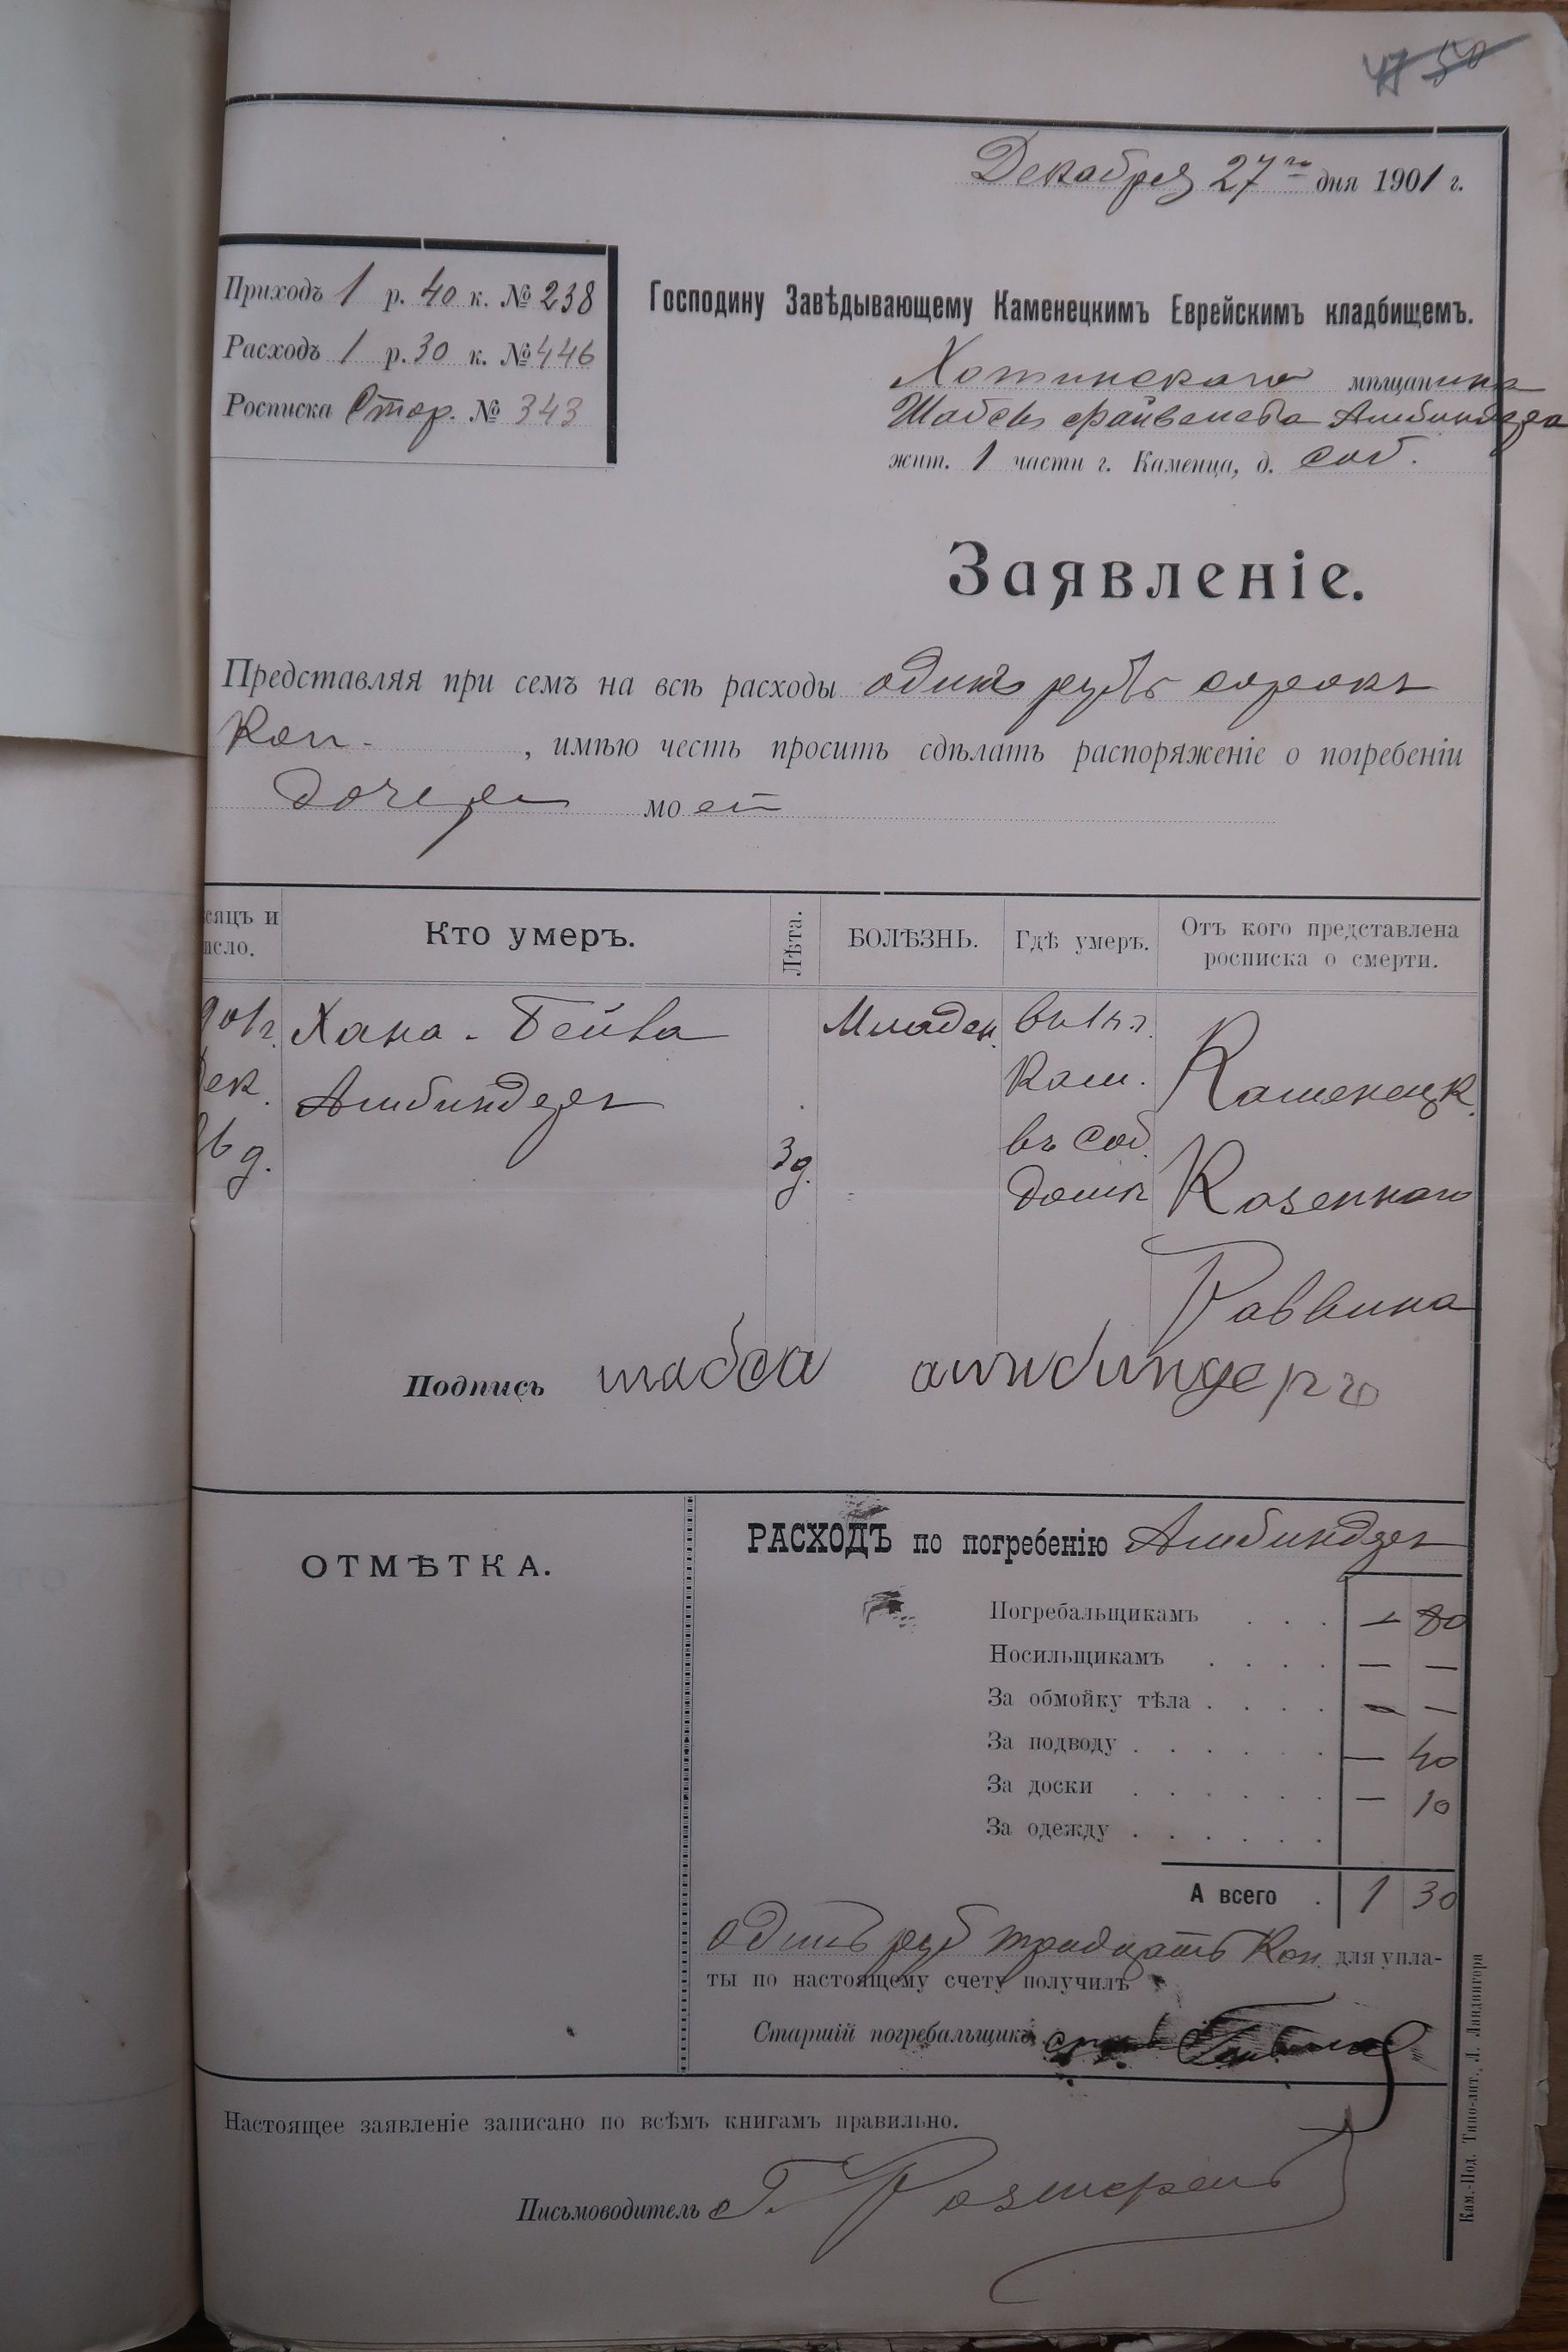 47 50
Декабря 27го дня 1901 г.
Приходъ 1 р. 40 к. № 238
Расходъ 1 р. 30 к. № 446
Росписка Стор. № 343
Господину Завѣдывающему Каменецкимъ Еврейскимъ кладбищемъ.
Хотинскаго мѣщанина
Шабсы Файвелева Ашбиндера
жит. 1 части г. Каменца, д. соб.
Заявленіе.
Представляя при семъ на всѣ расходы одинъ рубъ сорокъ
коп. , имѣю честь просить сдѣлать распоряженіе о погребеніи
дочери моей
сяцъ и
исло.
Кто умеръ.
Лѣта.
БОЛѢЗНЬ.
Гдѣ умеръ.
Отъ кого представлена
росписка о смерти.
901г.
Дек.
26 д.
Хана-Бейла
Ашбиндеръ
3 д.
Младен.
въ 1 ч. г.
Кам.
въ соб.
домѣ
Каменецк.
Казеннаго
Раввина
Подпись шабса ашбиндеръ
ОТМѢТКА.
РАСХОДЪ по погребенію Ашбиндеръ
Погребальщикамъ . . . — 80
Носильщикамъ . . . . — —
За обмойку тѣла . . . . — —
За подводу . . . . . . — 40
За доски . . . . . . — 10
За одежду . . . . . .
А всего . 1 30
одинъ руб тридцать коп. для упла-
ты по настоящему счету получилъ
Старшій погребальщикъ
Настоящее заявленіе записано по всѣмъ книгамъ правильно.
Письмоводитель
Кам.-Под. Типо-лит., Л. Ландвигера